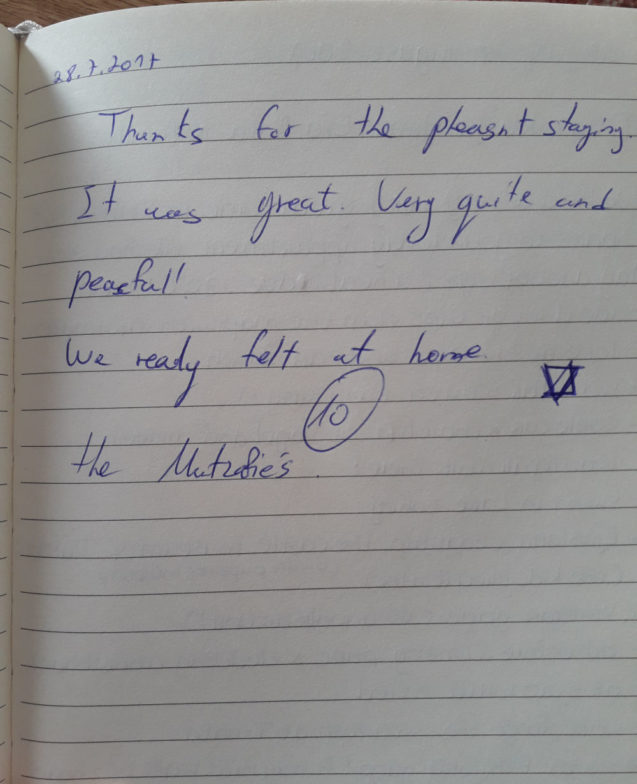 28.7.2017
Thanks for the pleasnt staying.
It was great. Very quite and
peaceful!
We ready felt at home.
10
the